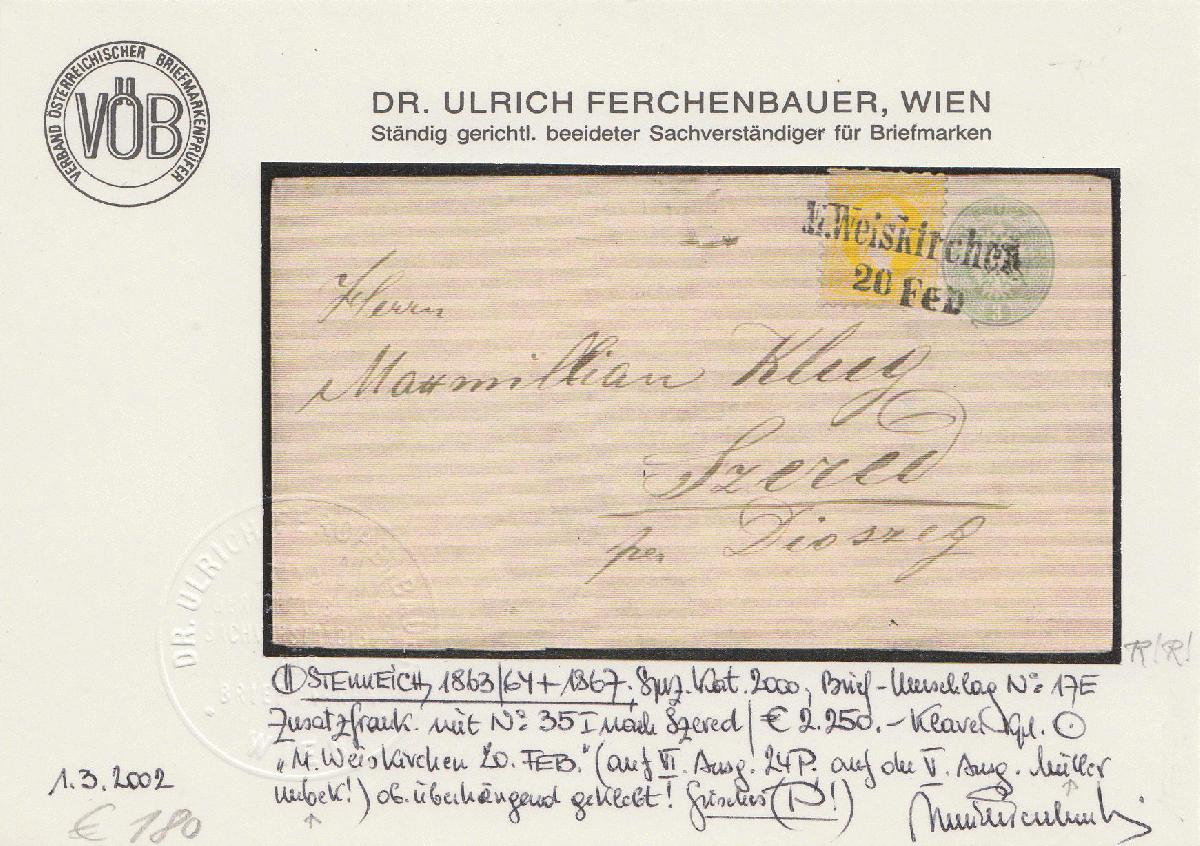 VERBAND ÖSTERREICHISCHER BRIEFMARKENPRÜFER
VÖB
DR. ULRICH FERCHENBAUER, WIEN
Ständig gerichtl. beeideter Sachverständiger für Briefmarken
M.Weiskirchen
20 FEB
3
Herrn
Maxmillian Klug
Szered
per Dioszeg
DR. ULRICH FERCHENBAUER
R!R!
ÖSTERREICH, 1863/64 + 1867, Spez. Kat. 2000, Brief-Umschlag No: 17E
Zusatzfrank. mit No: 35 I nach Szered / € 2.250.- Klarer kpl.
"M. Weiskirchen 20. FEB." (auf VI. Ausg. 24P. auf der V. Ausg. Müller
unbek!) ob. überhängend geklebt!
1.3.2002
€ 180